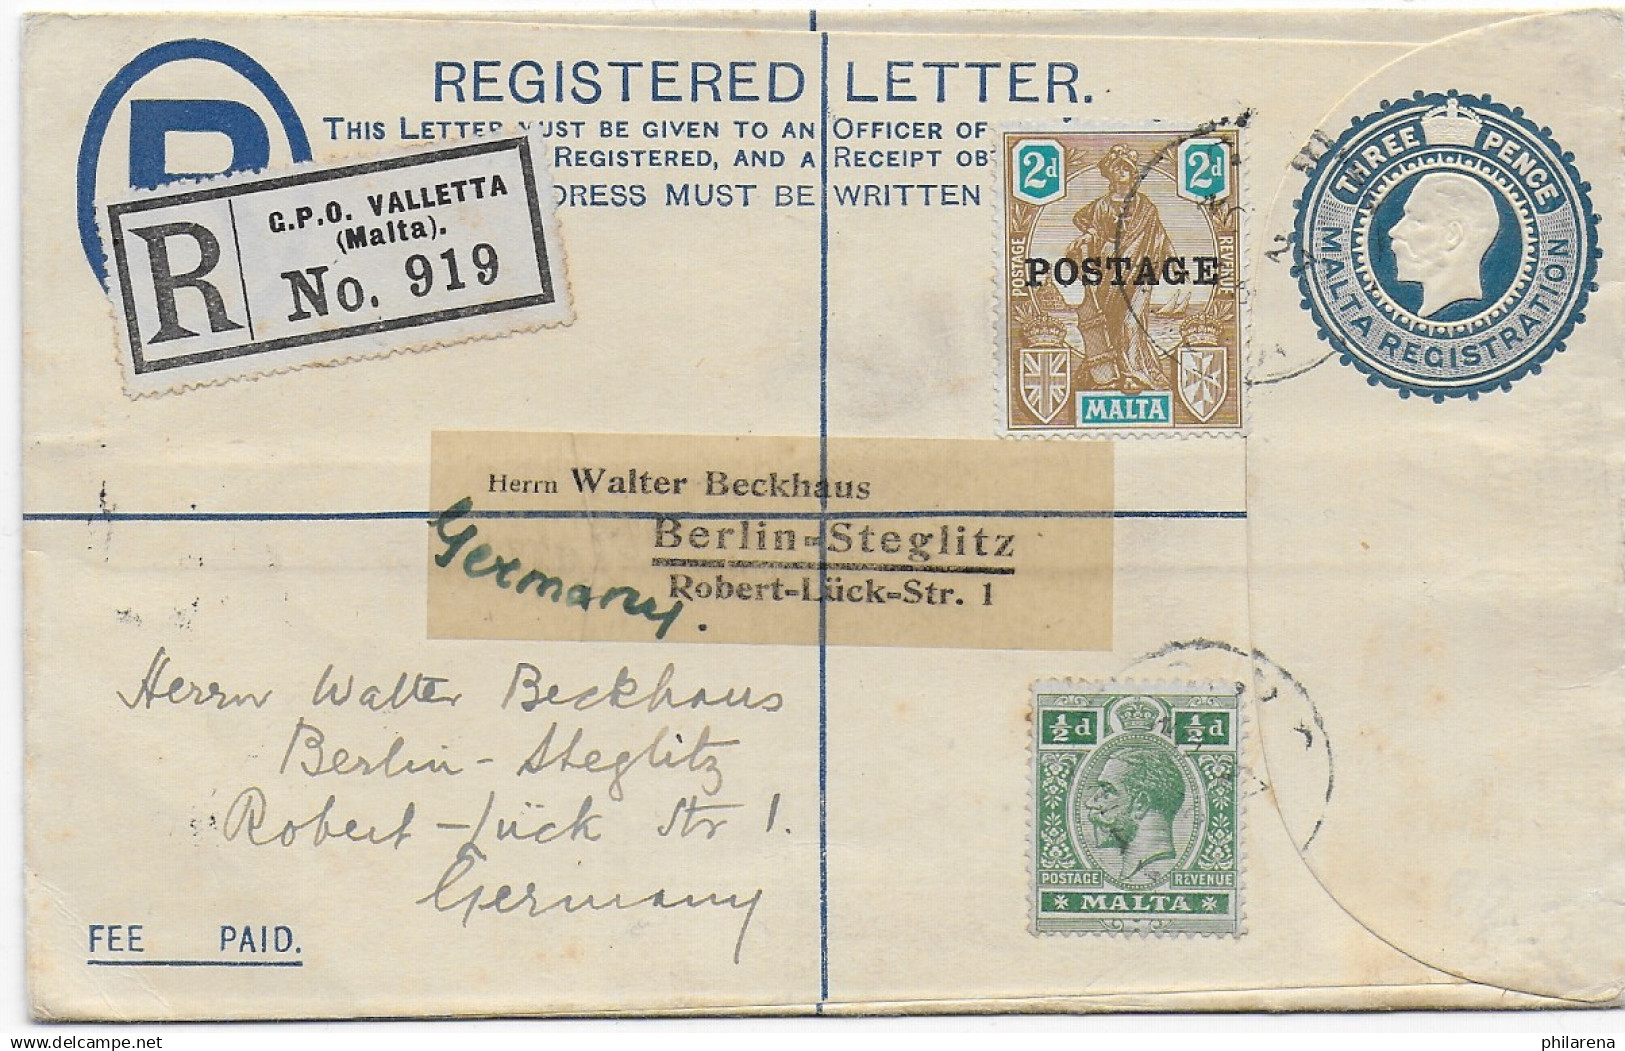 REGISTERED LETTER.
THIS LETTER MUST BE GIVEN TO AN OFFICER OF
REGISTERED, AND A RECEIPT OB
DRESS MUST BE WRITTEN
R
G.P.O. VALLETTA
(Malta).
No. 919
2d 2d
POSTAGE REVENUE
POSTAGE
MALTA
THREE PENCE
MALTA REGISTRATION
Herrn Walter Beckhaus
Berlin-Steglitz
Robert-Lück-Str. 1
Germany.
Herrn Walter Beckhaus
Berlin-Steglitz
Robert-Lück Str 1.
Germany
½d ½d
POSTAGE REVENUE
MALTA
FEE PAID.
delcampe.net
philarena